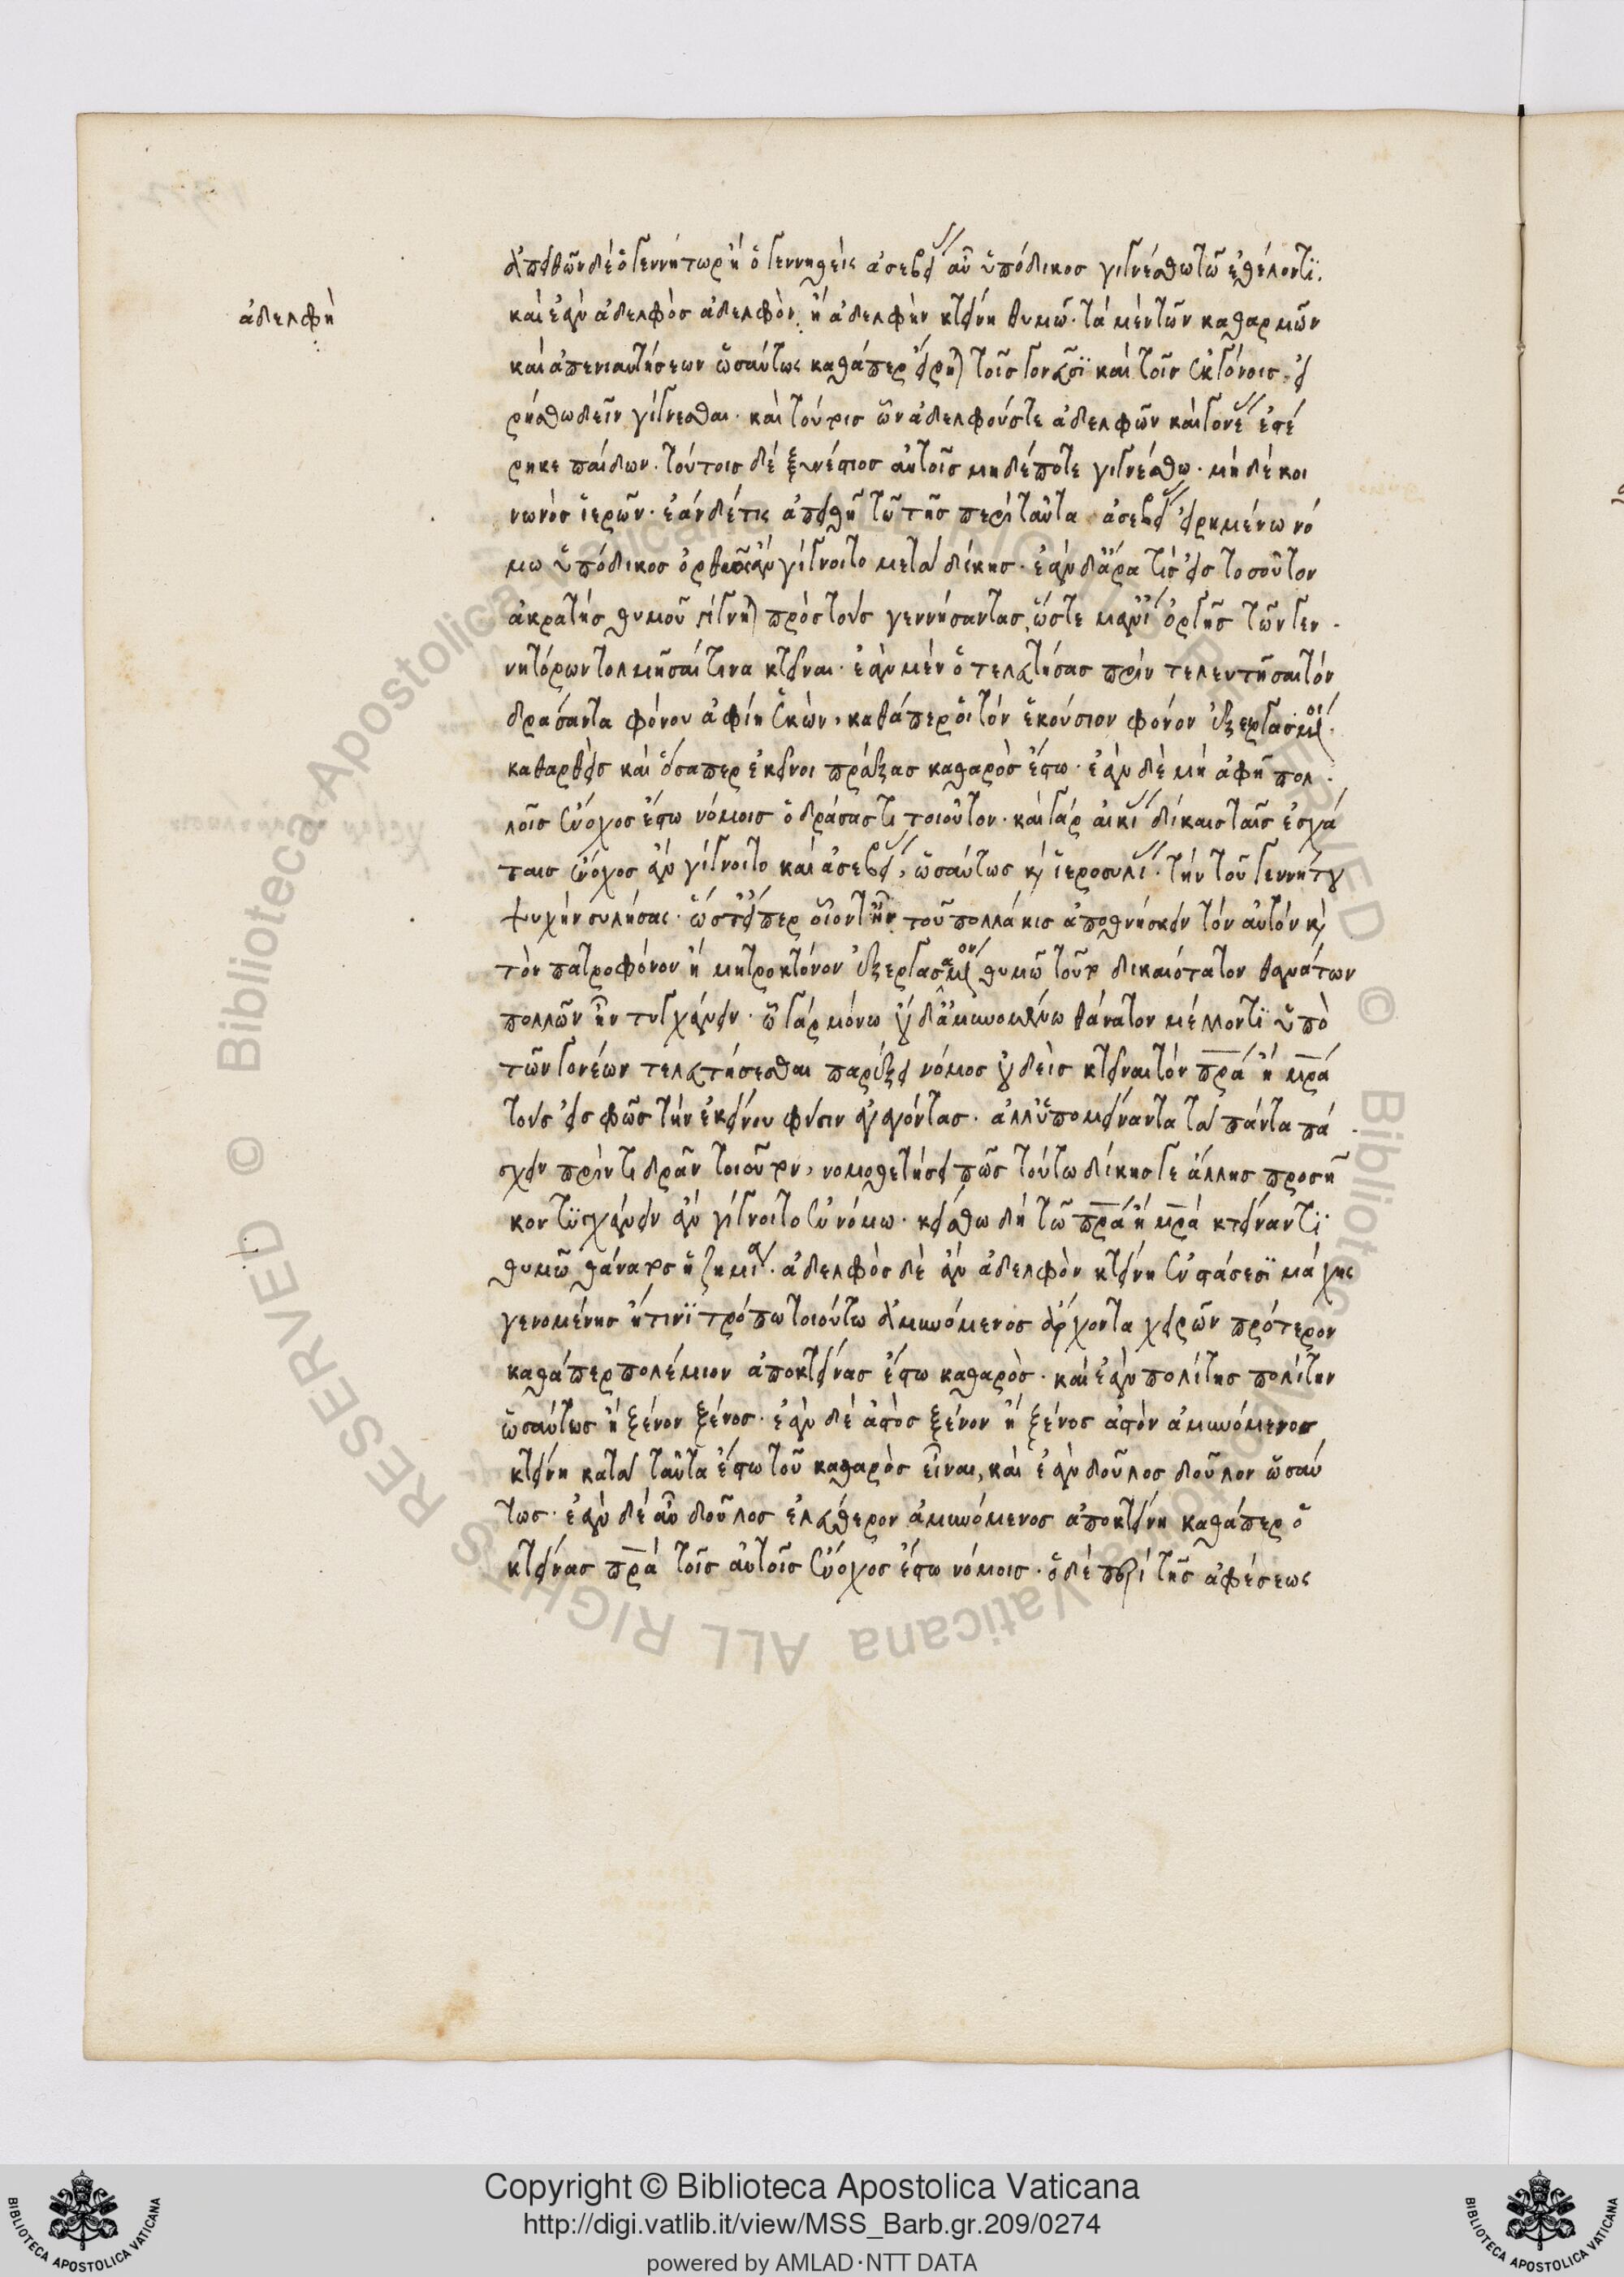 ἀπειθῶν δὲ ὁ γεννήτωρ ἢ ὁ γεννηθεὶς ἀσεβείας αὖ ὑπόδικος γιγνέσθω τῶ ἐθέλοντϊ.
ἀδελφὴ
καὶ ἐὰν ἀδελφὸς ἀδελφὸν ἢ ἀδελφὴν κτείνη θυμῶ. τὰ μὲν τῶν καθαρμῶν
καὶ ἀπενιαυτήσεων ὡσαύτως καθάπερ εἴρηται τοῖς γονεῦσϊ καὶ τοῖς ἐκγόνοις. εἰ
ρήσθω δεῖν γίγνεσθαι. καὶ τούτοις ὧν ἀδελφούς τε ἀδελφῶν καὶ γονέας ἐστέ
ρηκε παίδων. τούτοις δὲ ξυνέστιος αὐτοῖς μηδέποτε γιγνέσθω. μηδὲ κοι
νωνὸς ἱερῶν. ἐὰν δέ τις ἀπειθῆ τῶ τῆς περὶ ταῦτα ἀσεβείας εἰρημένω νό
μω ὑπόδικος ὀρθῶς ἂν γίγνοιτο μετὰ δίκης. ἐὰν δ᾽ἄρα τὶς εἰς τοσοῦτον
ἀκρατὴς θυμοῦ γίγνηται πρὸς τοὺς γεννήσαντας, ὥστε μανίαις ὀργῆς τῶν γεν
νητόρων τολμῆσαί τινα κτεῖναι. ἐὰν μὲν ὁ τελευτήσας πρὶν τελευτῆσαι τὸν
δράσαντα φόνου ἀφίη ἑκὼν, καθάπερ οἱ τὸν ἑκούσιον φόνον ἐξεργασάμενοι.
καθαρθεὶς καὶ ὅσαπερ ἐκεῖνοι πράξας καθαρὸς ἔστω. ἐὰν δὲ μὴ ἀφῆ πολ
λοῖς ἔνοχος ἔστω νόμοις ὁ δράσας τι τοιοῦτον. καὶ γὰρ αἰκίας δίκαις ταῖς ἐσχά
ταις ἔνοχος ἂν γίγνοιτο καὶ ἀσεβείας, ὡσαύτως καὶ ἱεροσυλίας. τὴν τοῦ γεννήτου
ψυχὴν συλήσας. ὥστ᾽ εἴπερ οἷόν τ᾽ ἦν τοῦ πολλάκις ἀποθνήσκειν τὸν αὐτὸν καὶ
τὸν πατροφόνον ἢ μητροκτόνον ἐξεργασάμενον θυμῶ τοῦτο δικαιότατον θανάτων
πολλῶν ἦν τυγχάνειν. ὧ γὰρ μόνω οὐδ᾽ ἀμυνομένω θάνατον μέλλοντϊ ὑπὸ
τῶν γονέων τελευτήσεσθαι παρέξει νόμος οὐδεὶς κτεῖναι τὸν πρα ἢ μρα
τοὺς εἰς φῶς τὴν ἐκείνου φύσιν ἀγαγόντας. ἀλλ᾽ ὑπομείναντα τὰ πάντα πά
σχειν πρὶν τι δρᾶν τοιοῦτον, νομοθετήσει πῶς τούτω δίκης γε ἄλλης προσῆ
κον τυγχάνειν ἂν γίγνοιτο ἐν νόμω. κείσθω δὴ τῶ πρα ἢ μρα κτείναντϊ
θυμῶ θάνατος ἡ ζημία. ἀδελφὸς δὲ ἂν ἀδελφὸν κτείνη ἐν στάσεσϊ μάχης
γενομένης ἤ τινϊ τρόπω τοιούτω ἀμυνόμενος ἄρχοντα χειρῶν πρότερον
καθάπερ πολέμιον ἀποκτείνας ἔστω καθαρὸς. καὶ ἐὰν πολίτης πολίτην
ὡσαύτως ἢ ξένον ξένος. ἐὰν δὲ ἀστὸς ξένον ἢ ξένος ἀστὸν ἀμυνόμενος
κτείνη κατὰ ταῦτα ἔστω τοῦ καθαρὸς εἶναι, καὶ ἐὰν δοῦλος δοῦλον ὡσαύ
τως. ἐὰν δὲ αὖ δοῦλος ἐλεύθερον ἀμυνόμενος ἀποκτείνη καθάπερ ὁ
κτείνας πρα τοῖς αὐτοῖς ἔνοχος ἔστω νόμοις. ὃ δὲ περὶ τῆς ἀφέσεως
Copyright © Biblioteca Apostolica Vaticana
http://digi.vatlib.it/view/MSS_Barb.gr.209/0274
powered by AMLAD·NTT DATA